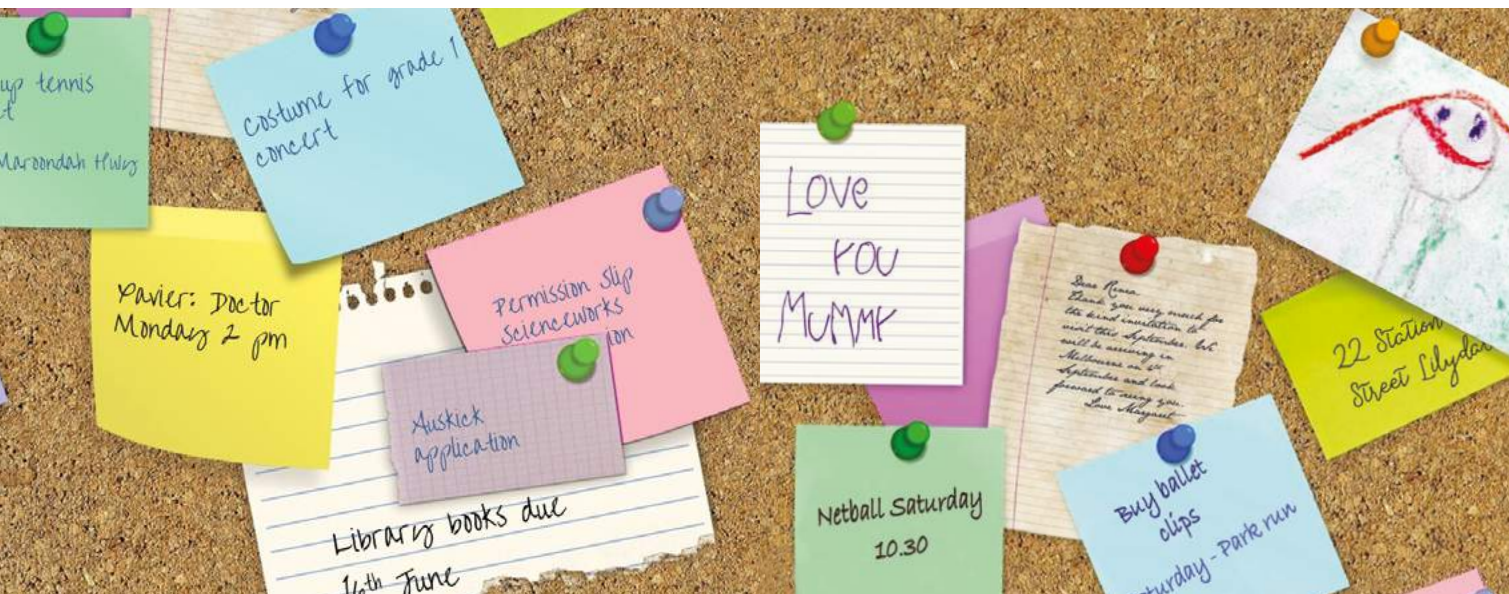 up tennis
Maroondah Hwy
costume for grade 1
concert
Xavier: Doctor
Monday 2 pm
Permission slip
scienceworks
Auskick
application
Library books due
16th June
Love
You
Mummy
Dear Kiara
Thank you very much for
the kind invitation to
visit this September. We
will be arriving in
Melbourne on
September and look
forward to seeing you.
Love Margaret
22 Station
Street Lilydale
Netball Saturday
10.30
Buy ballet
clips
Saturday - Park run